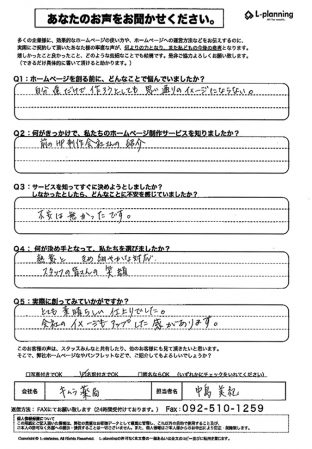 あなたのお声をお聞かせください。
L-planning
多くの企業様に、効果的なホームページの良い方や、ホームページへの運営方法などをお伝えするのに、
実際にご契約して頂いたあなた様の率直な声が、何よりの力となり、またまたの今後の発表となります。
嬉しかったこと良かったこと、どのような些細なことでも結構です。是非ご協力よろしくお願い致します。
(できるだけ具体的に書いて頂けると助かります。)
Q1:ホームページを創る前に、どんなことで悩んでいましたか?
自分達だけで作ろうとしても思い通りのイメージにならない。
Q2:何がきっかけで、私たちのホームページ制作サービスを知りましたか?
前のHP制作会社さんの紹介
Q3:サービスを知ってすぐに決めようとしましたか?
しなかったとしたら、どんなことに不安を感じていましたか?
不安は無かったです。
Q4:何が決め手となって、私たちを選びましたか?
熱意ときめ細やかな対応
スタッフの皆さんの笑顔
Q5:実際に創ってみていかがですか?
とても素晴らしい仕上りでした。
会社のイメージもアップした感があります。
このお客様の声は、スタッフみんなと共有したり、他のお客様にも見て頂きたいと思います。
そこで、弊社ホームページやパンフレットなどで、ご紹介してもよろしいでしょうか?
□写真付きでOK □匿名ならOK (いずれかにチェックを入れてください)
会社名 キムラ薬局 担当者名 中島 美紀
送信方法:FAXにてお願い致します(24時間受付けております。) Fax:092-510-1259
個人情報保護について